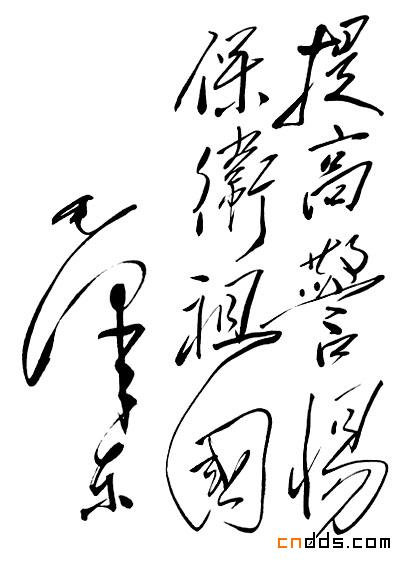 提高警惕
保衛祖國
毛泽东
cndds.com